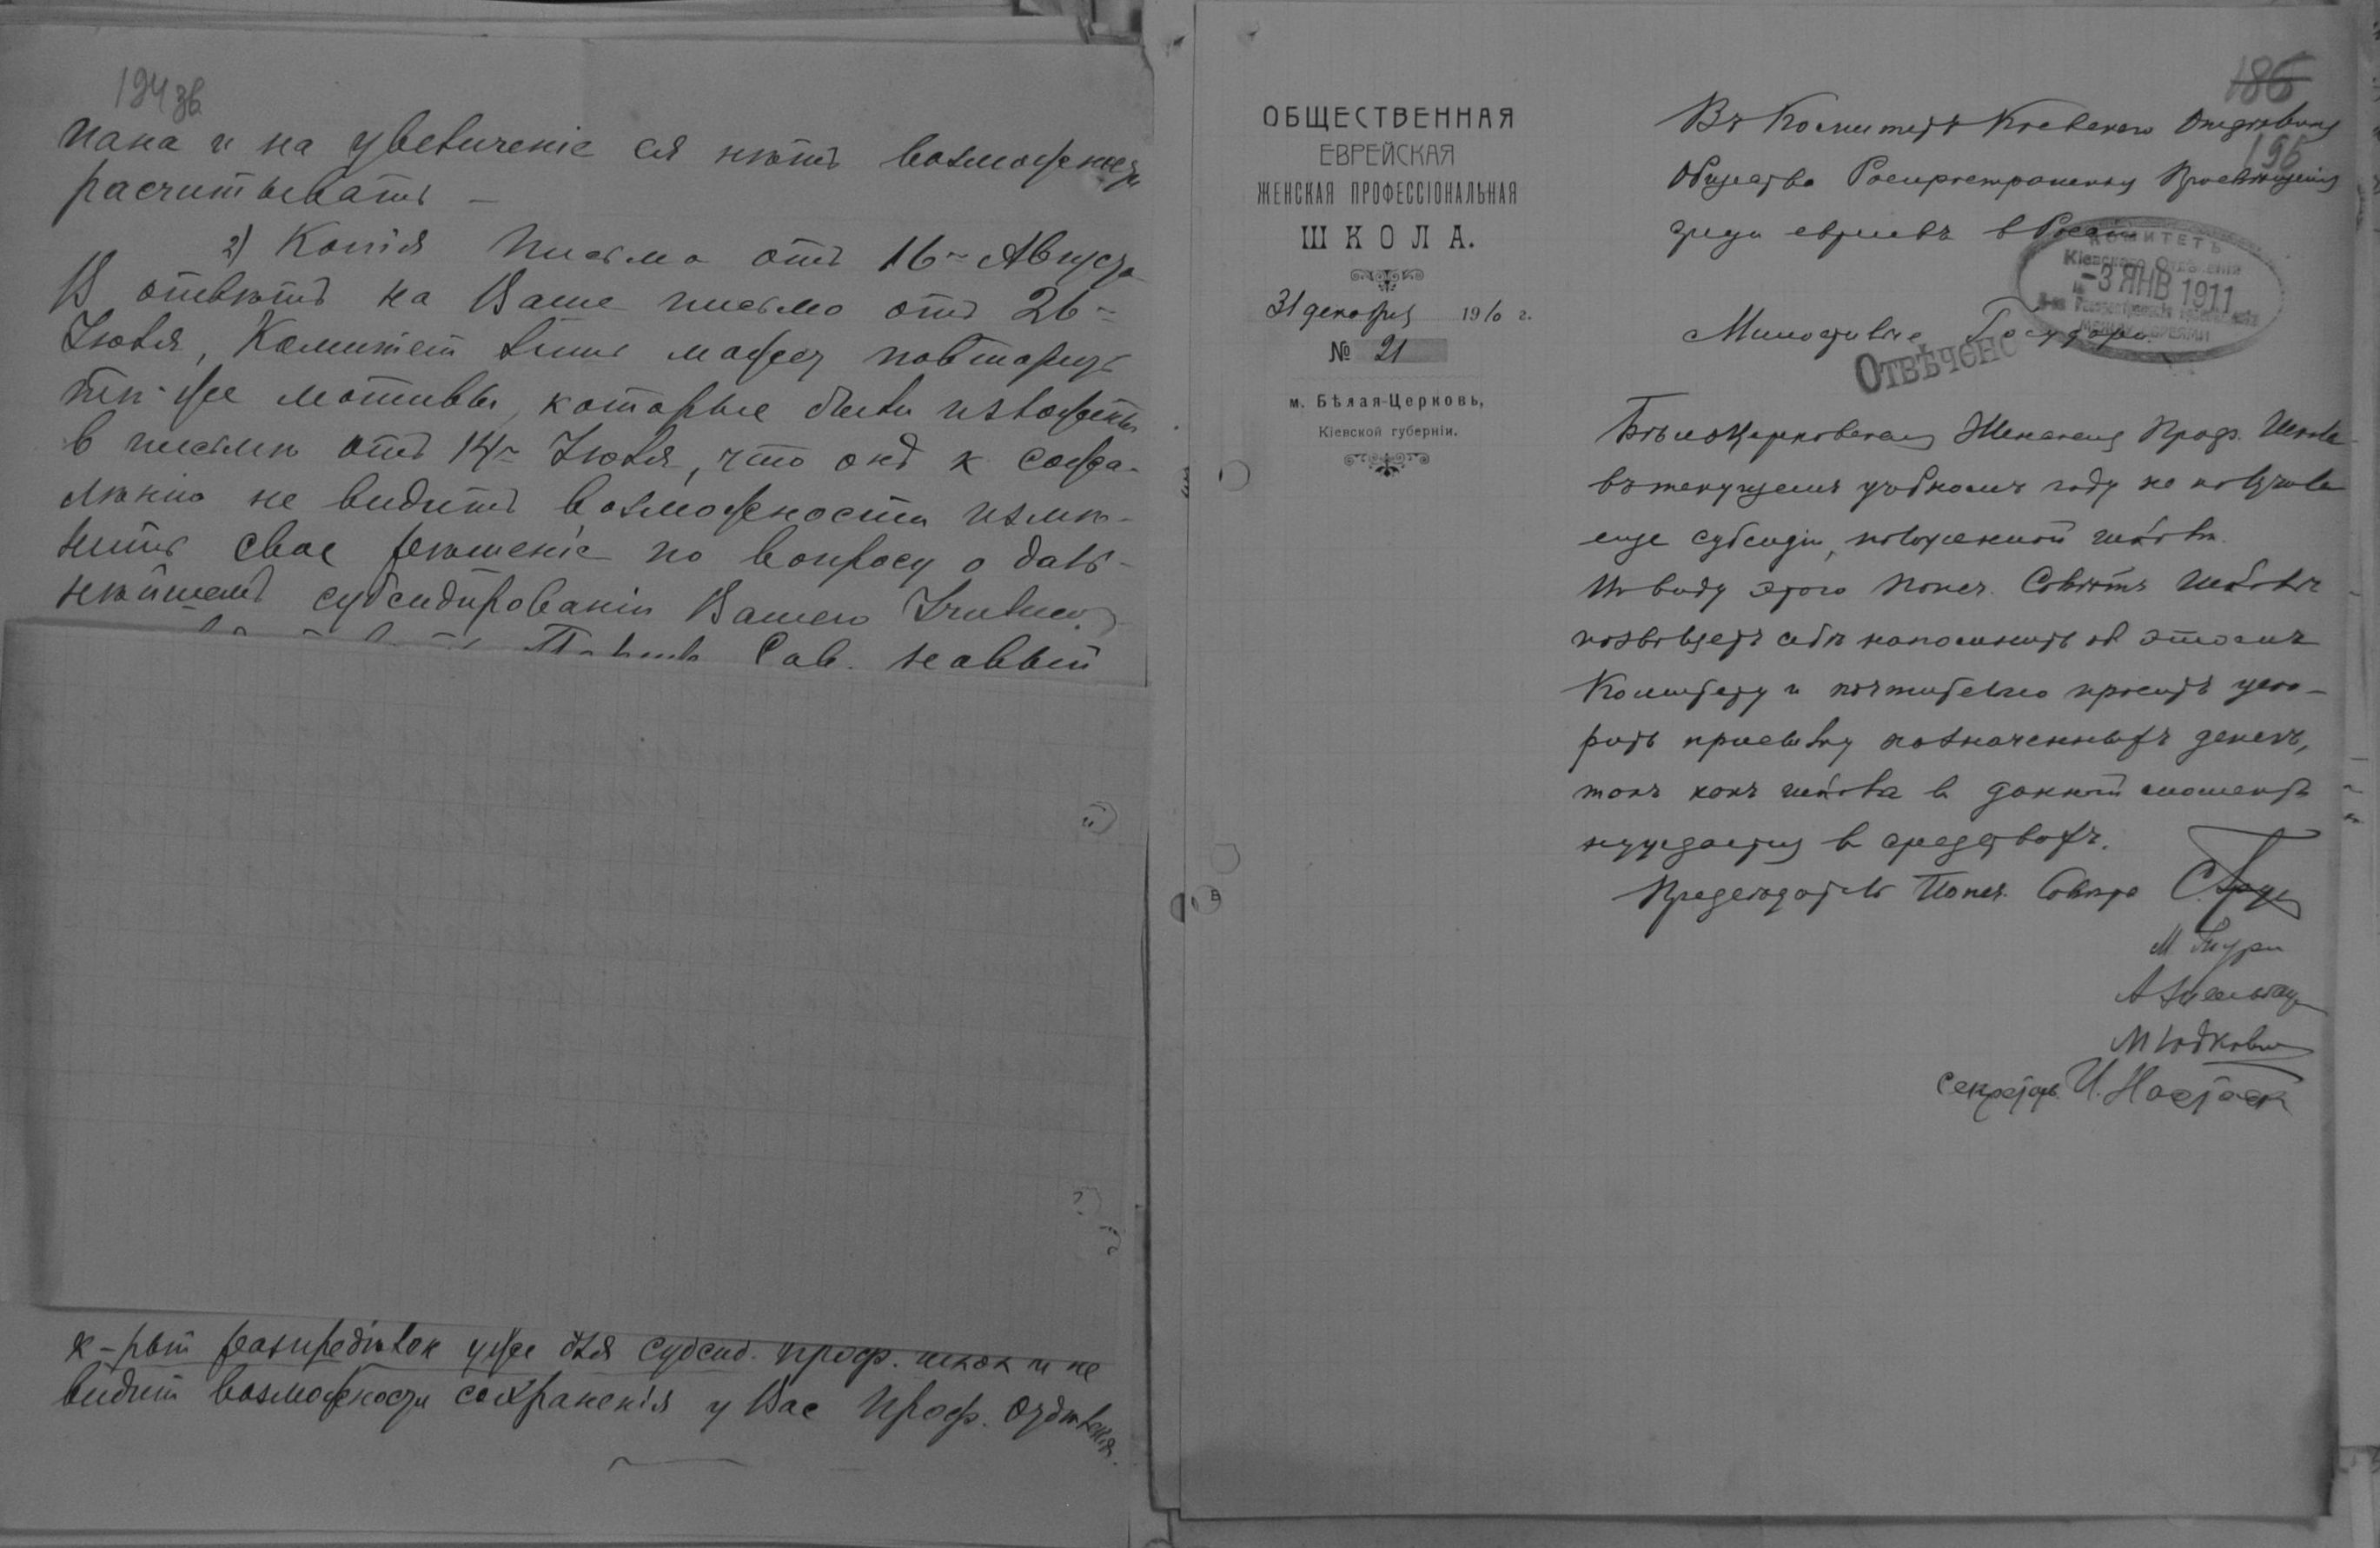 194 зв
пака и на увеличеніе ея нѣтъ возможности
расчитывать —
2) Копія письма отъ 16го Августа
В отвѣтъ на Ваше письмо отъ 26го
Іюля, Комитет лишь может повторить
тѣ же мотивы, которые были изложены
в письмѣ отъ 14го Іюля, что онъ к сожа-
лѣнію не видитъ возможности измѣ-
нить свое рѣшеніе по вопросу о даль-
нѣйшемъ субсидированіи Вашего Училища
Сов. новый
к-рый распредѣлен уже для субсид. проф. школ и не
видит возможности сохраненія у Вас Проф. Отдѣленія.
ОБЩЕСТВЕННАЯ
ЕВРЕЙСКАЯ
ЖЕНСКАЯ ПРОФЕССІОНАЛЬНАЯ
ШКОЛА.
31 декабря 1910 г.
№ 21
м. Бѣлая-Церковь,
Кіевской губерніи.
186
195
Въ Комитетъ Кіевскаго Отдѣленія
Общества Распространенія Просвѣщенія
среди евреевъ в Россіи
КОМИТЕТЪ
Кіевскаго Отдѣленія
-3 ЯНВ 1911
МЕЖДУ ЕВРЕЯМИ
Милостивые Государи.
ОТВѢЧЕНО
Бѣлоцерковская Женская Проф. Школа
въ текущемъ учебномъ году не получала
еще субсидіи, положенной школѣ.
Въ виду этого Попеч. Совѣтъ Школы
позволяетъ себѣ напомнить об этомъ
Комитету и почтительно проситъ уско-
рить присылку назначенныхъ денегъ,
такъ какъ школа в данный моментъ
нуждается в средствахъ.
Предсѣдатель Попеч. Совѣта
М.
А.
М Юдкович
Секретарь И.